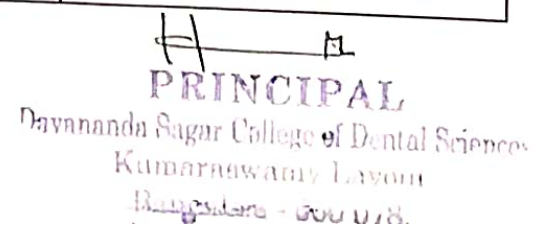 PRINCIPAL
Dayananda Sagar College of Dental Sciences
Kumaraswamy Layout